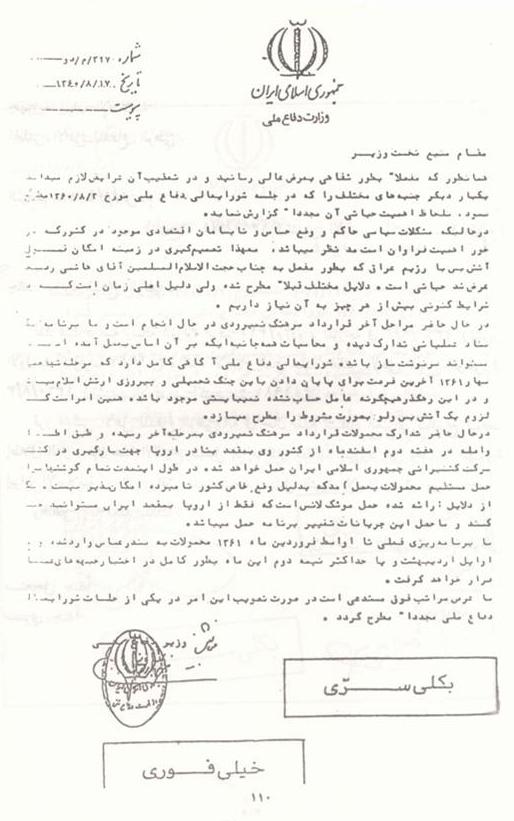 شماره ۲۹۷۰/م/دو
تاریخ ۱۳۶۰/۸/۱۷
پیوست
جمهوری اسلامی ایران
وزارت دفاع ملی
مقام منیع نخست وزیر
همانطور که مفصلا" بطور شفاهی بعرض عالی رسانید و در تعقیب آن عرایض لازم میداند
یکبار دیگر جنبه‌های مختلف را که در جلسه شورایعالی دفاع ملی مورخ ۱۳۶۰/۸/۲ مطرح
نمود، بلحاظ اهمیت حیاتی آن مجددا" گزارش نماید.
درحالیکه مشکلات سیاسی حاکم و وضع حساس و نابسامان اقتصادی موجود در کشور که در
خور اهمیت فراوان است مد نظر میباشد. معهذا تصمیم‌گیری در زمینه امکان قبول
آتش بس با رژیم عراق که بطور مفصل به جناب حجت الاسلام المسلمین آقای هاشمی
عرض شد حیاتی است. دلایل مختلف قبلا" مطرح شده ولی دلیل اصلی زمان است که در
شرایط کنونی بیش از هر چیز به آن نیاز داریم.
در حال حاضر مراحل آخر قرارداد سرهنگ نمرودی در حال انجام است و ما برنامه
ستاد عملیاتی تدارک دیده و محاسبات همه‌جانبه‌ایکه بر آن اساس بعمل آمده است
میتواند سرنوشت ساز باشد. شورایعالی دفاع ملی آگاهی کامل دارد که حمله نهایی
بهار ۱۳۶۱ آخرین فرصت برای پایان دادن باین جنگ تحمیلی و پیروزی ارتش اسلام
و در این رهگذر هیچگونه عامل حساب نشده نمیبایستی موجود باشد. همین امر است که
لزوم یک آتش بس ولو بصورت مشروط را مطرح میسازد.
درحال حاضر تدارک محمولات قرارداد سرهنگ نمرودی بمرحله آخر رسیده و طبق
واصله در هفته دوم اسفندماه از کشور وی بمقصد بنادر اروپا جهت بارگیری در کشتی
شرکت کشتیرانی جمهوری اسلامی ایران حمل خواهد شد. در طول اینمدت تمام کوششها برای
حمل مستقیم محمولات بعمل آمد که بدلیل وضع خاص کشور نامبرده امکان‌پذیر نیست. یکی
از دلایل ارائه شده حمل موشک لانس است که فقط از اروپا بمقصد ایران میتوانید حمل
کنند و ماحصل این جریانات تغییر برنامه حمل میباشد.
با برنامه‌ریزی قبلی تا اواسط فروردین ماه ۱۳۶۱ محمولات به بندرعباس وارد شده و
اوایل اردیبهشت و یا حداکثر نیمه دوم این ماه بطور کامل در اختیار جبهه‌های
قرار خواهد گرفت.
با عرض مراتب فوق مستدعی است در صورت تصویب این امر در یکی از جلسات شورایعالی
دفاع ملی مجددا" مطرح گردد.
وزیر
بکلی سرّی
خیلی فوری
۱۱۰